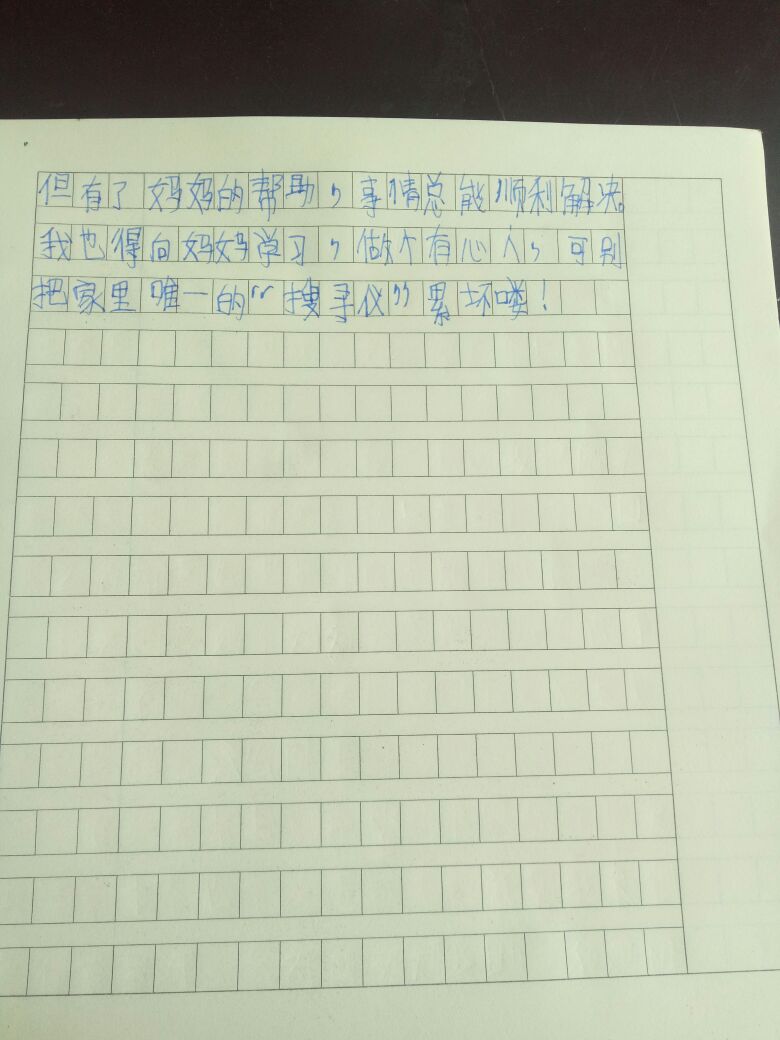 但有了妈妈的帮助，事情总能顺利解决。
我也得向妈妈学习，做个有心人，可别
把家里唯一的“搜寻仪”累坏喽！